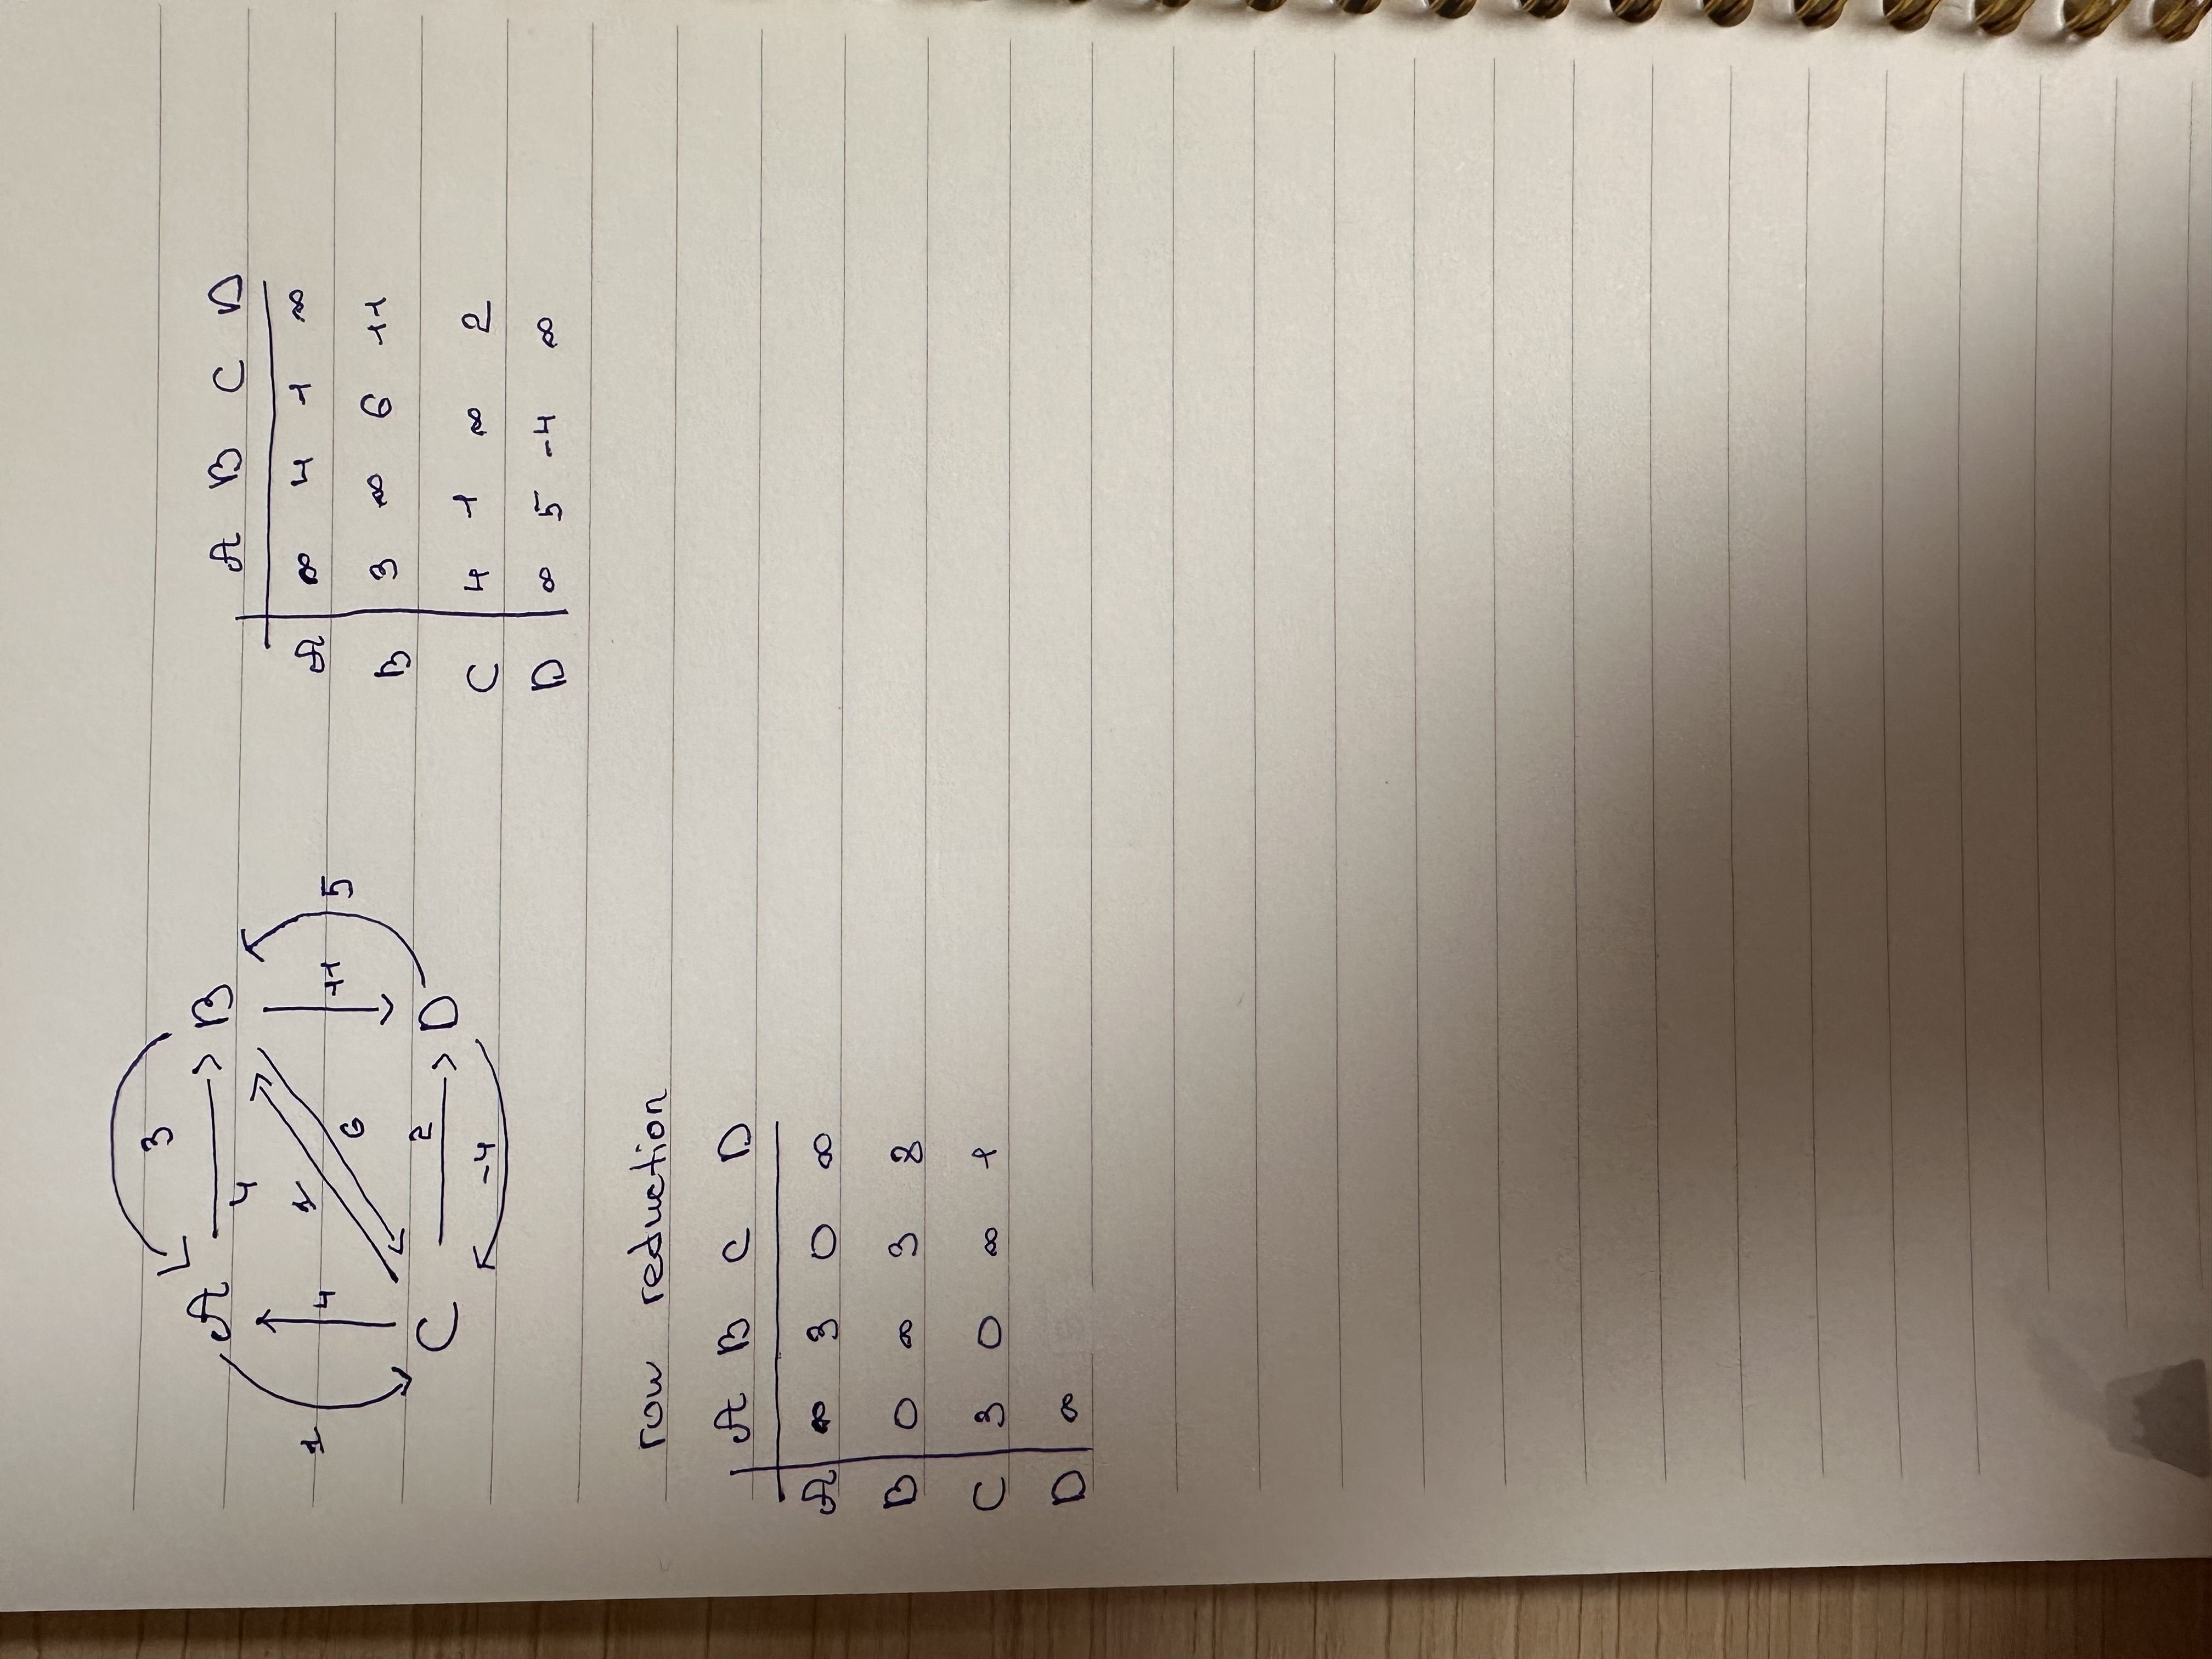 3
A B
4
1 4 1 6 11 5
2
C D
-4
A B C D
A ∞ 4 1 ∞
B 3 ∞ 6 11
C 4 1 ∞ 2
D ∞ 5 -4 ∞
row reduction
A B C D
A ∞ 3 0 ∞
B 0 ∞ 3 8
C 3 0 ∞ 1
D ∞